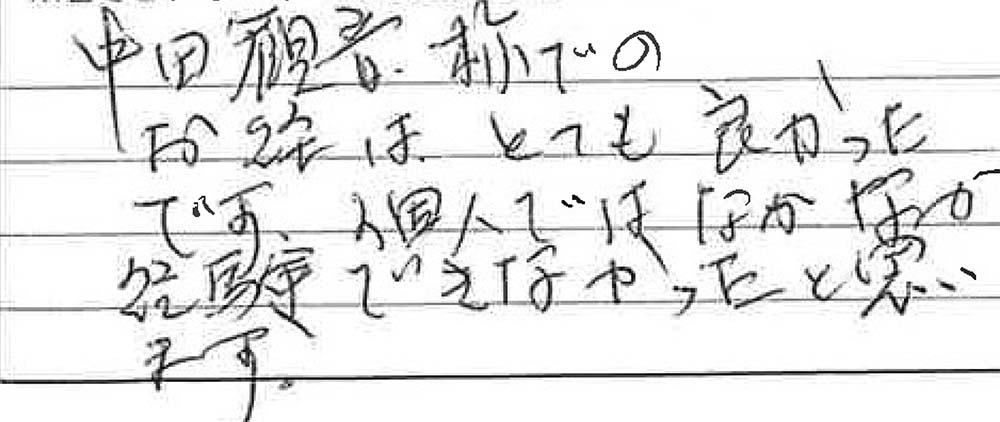 中田観音様での
お経はとても良かった
です、個人ではなかなか
経験できなかったと思い
ます。